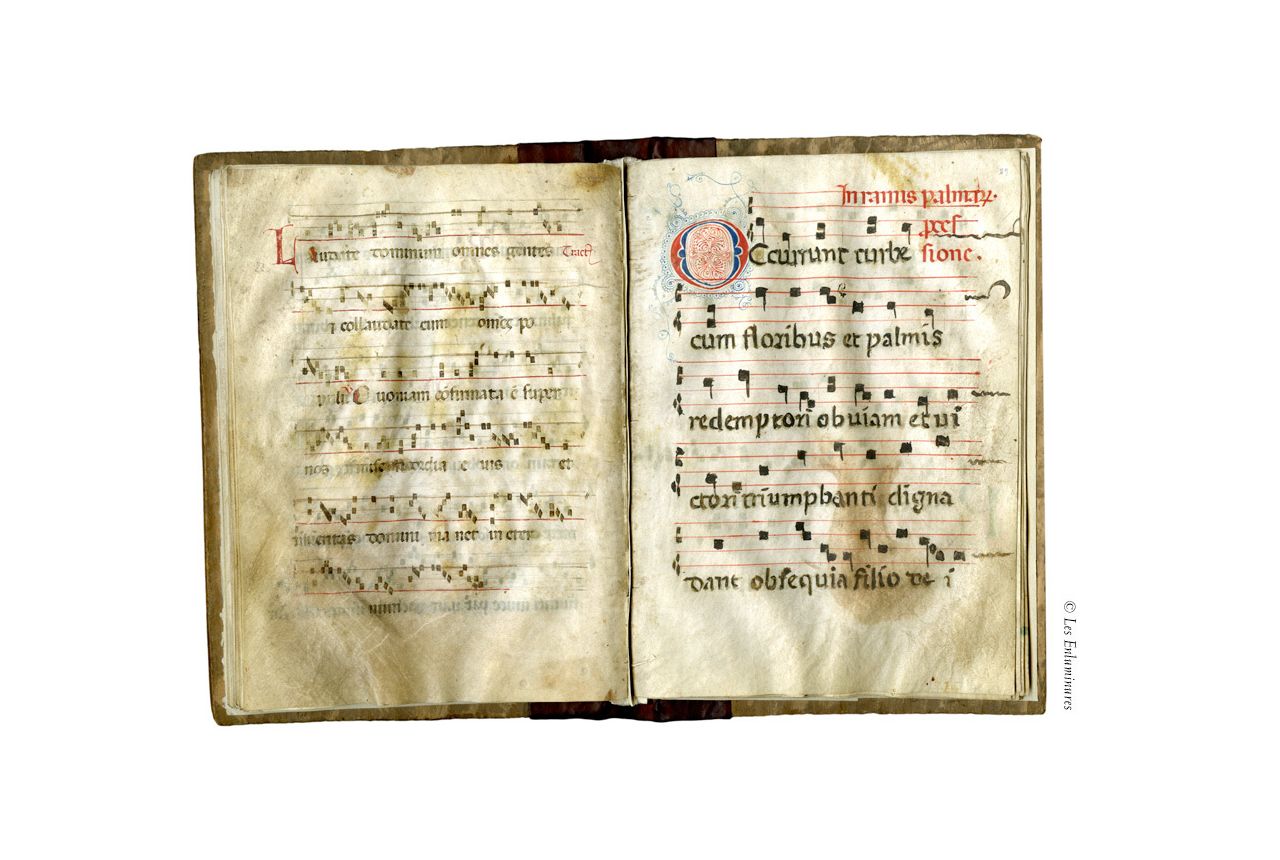 Laudate dominum omnes gentes Tract
et collaudate eum omẽs po
puli Quoniam cõfirmata ẽ super
nos misericordia eius et
veritas domini ma net in eter
In ramis palmaꝝ.
pcessione.
Occurrunt turbe
cum floribus et palmis
redemptori obuiam et ui
ctori triumphanti digna
dant obsequia filio de i
© Les Enluminures